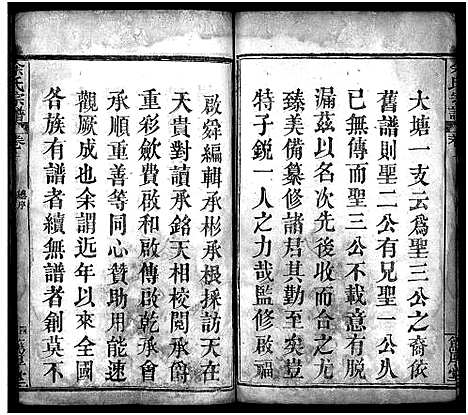 大塘一支云爲聖三公之裔餤
舊譜則聖二公有兄聖一公
已無傳而聖三公不載意有脫
漏茲以名次先後光大宗也
臻美備纂修諸君其勤至矣
特子銳一人哉監修啟福
啟舜編輯承彬承根採訪天在
天貴對讀承銘天相校閱承爵
重彩歛費啟和啟傳啟乾承會
承順重善等同心贊助用能速
觀厥成也余謂近年以來全國
各族有譜者續無譜者創莫不
余氏宗譜
卷
總序